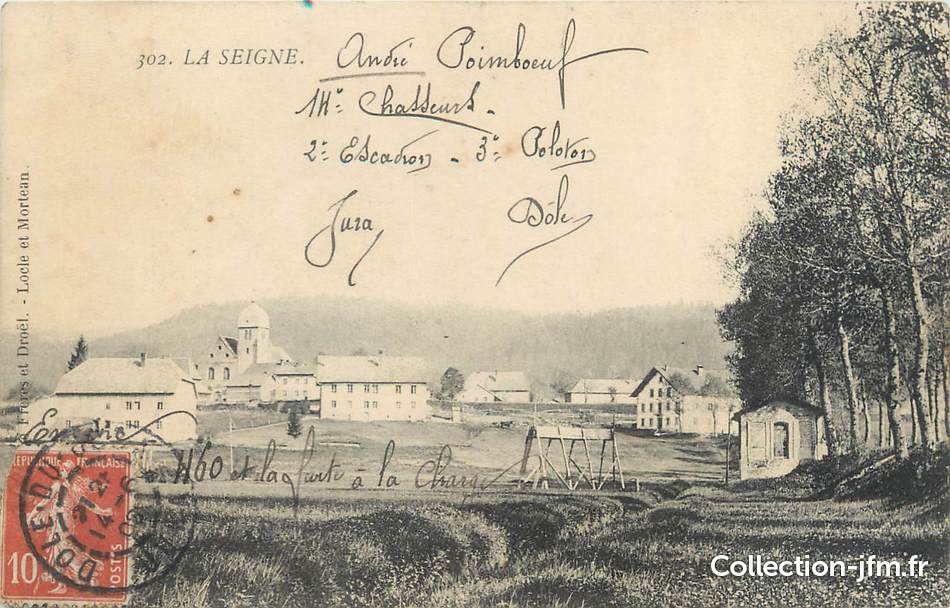 302. LA SEIGNE.
André Poimboeuf
14e Chasseurs.
2e Escadron - 3e Peloton
Jura Dôle
Frères et Droël. - Locle et Morteau.
Encore
460 et la fuite à la Charge
REPUBLIQUE FRANÇAISE
10
POSTES
DOLE DU JURA
Collection-jfm.fr